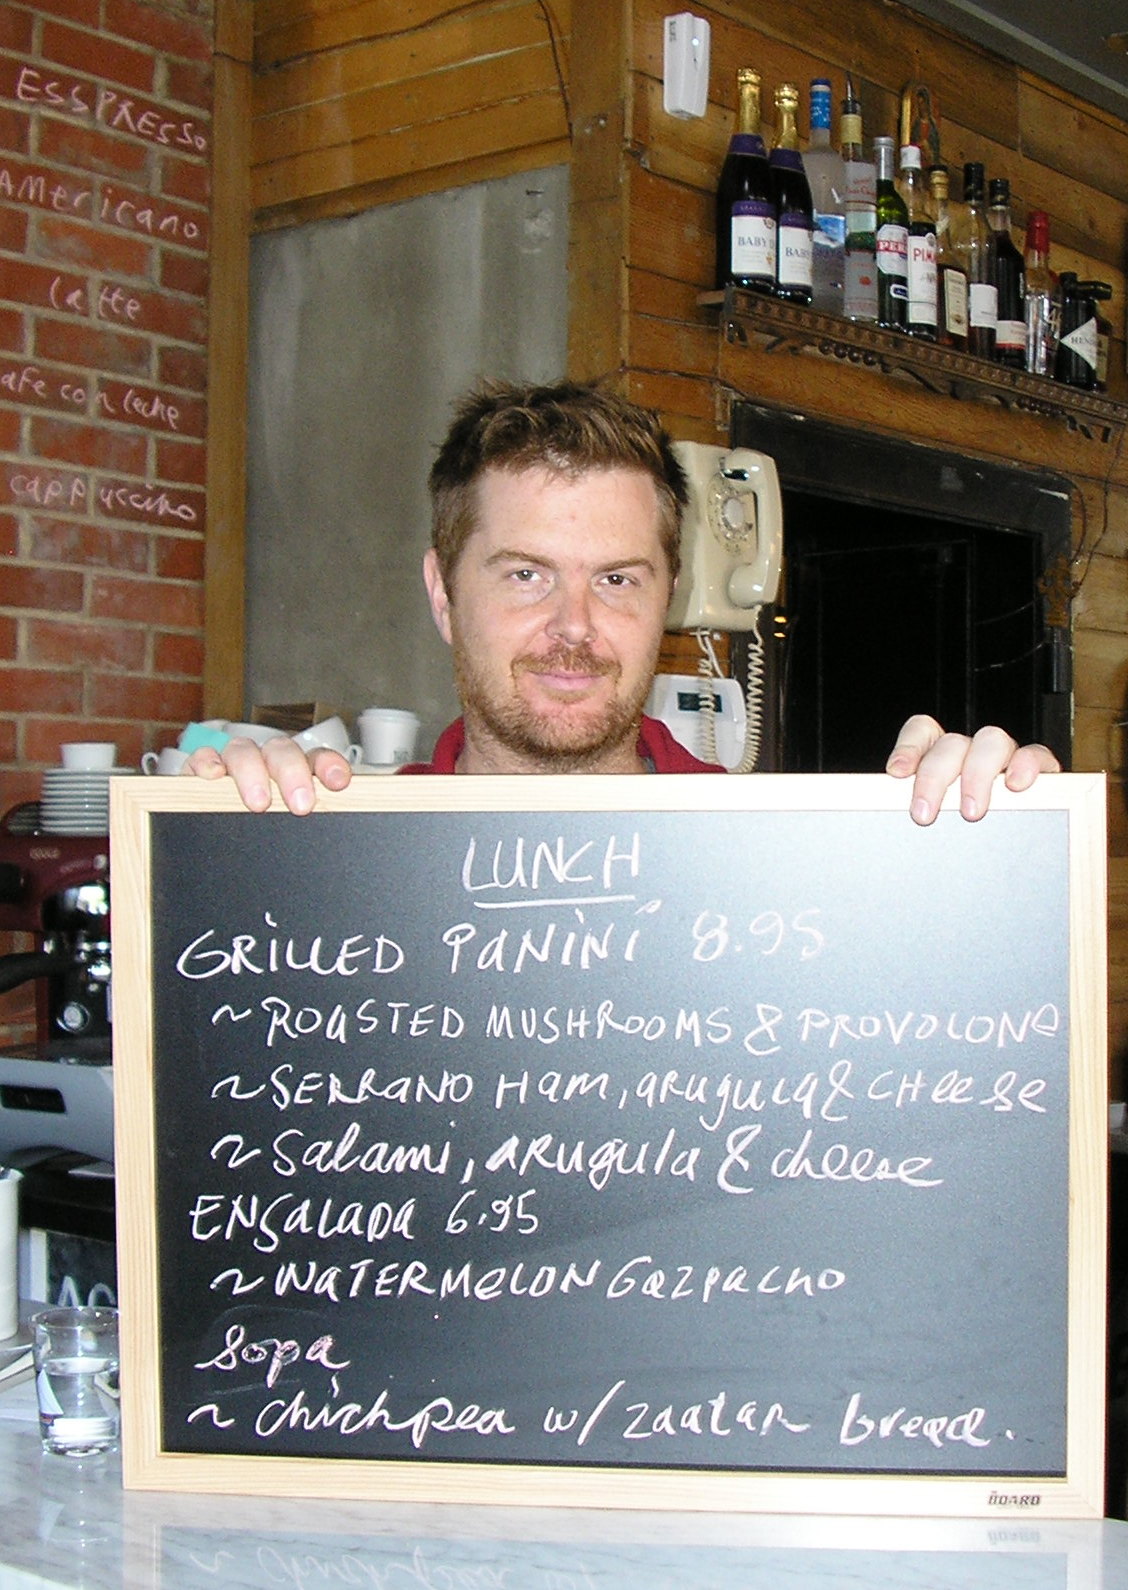 ESSPRESSO
AMericano
latte
afe con leche
cappuccino
BABY
BABY
PIM
HEN
LUNCH
GRILLED PANINI 8.95
~ROASTED MUSHROOMS & PROVOLONE
~SERRANO HAM, arugula & CHeese
~Salami, ARugula & cheese
ENSALADA 6.95
~WATERMELON GAZPACHO
Sopa
~ chickpea w/ zaatar bread.
BOARD